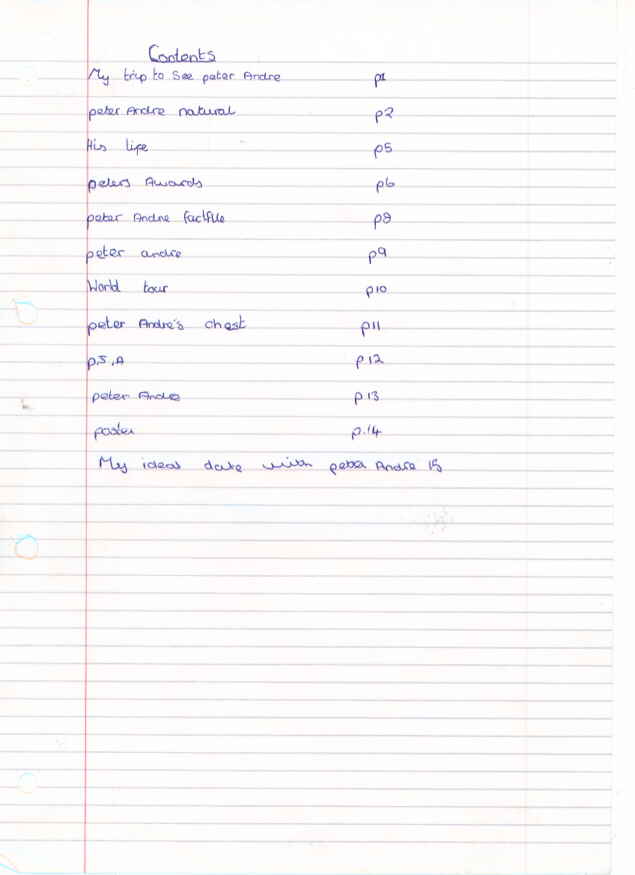 Contents
My trip to See peter Andre p1
peter Andre natural p2
His life p5
peters Awards p6
peter Andre factfile p8
peter andre p9
World tour p10
peter Andre's chest p11
p.J.A p12
peter Andre p13
poster p.14
My ideal date with peter Andre 15